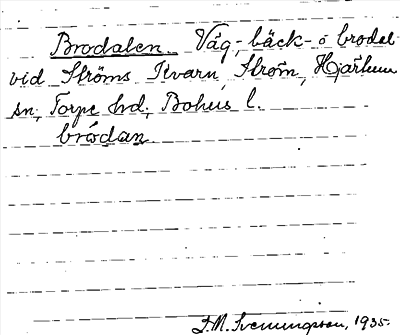 Brodalen Väg-, bäck- o brodal
vid Ströms Kvarn, Ström, Hjärtum
sn, Torpe hd, Bohus l.
brödan
F.M. Svenningson, 1935.